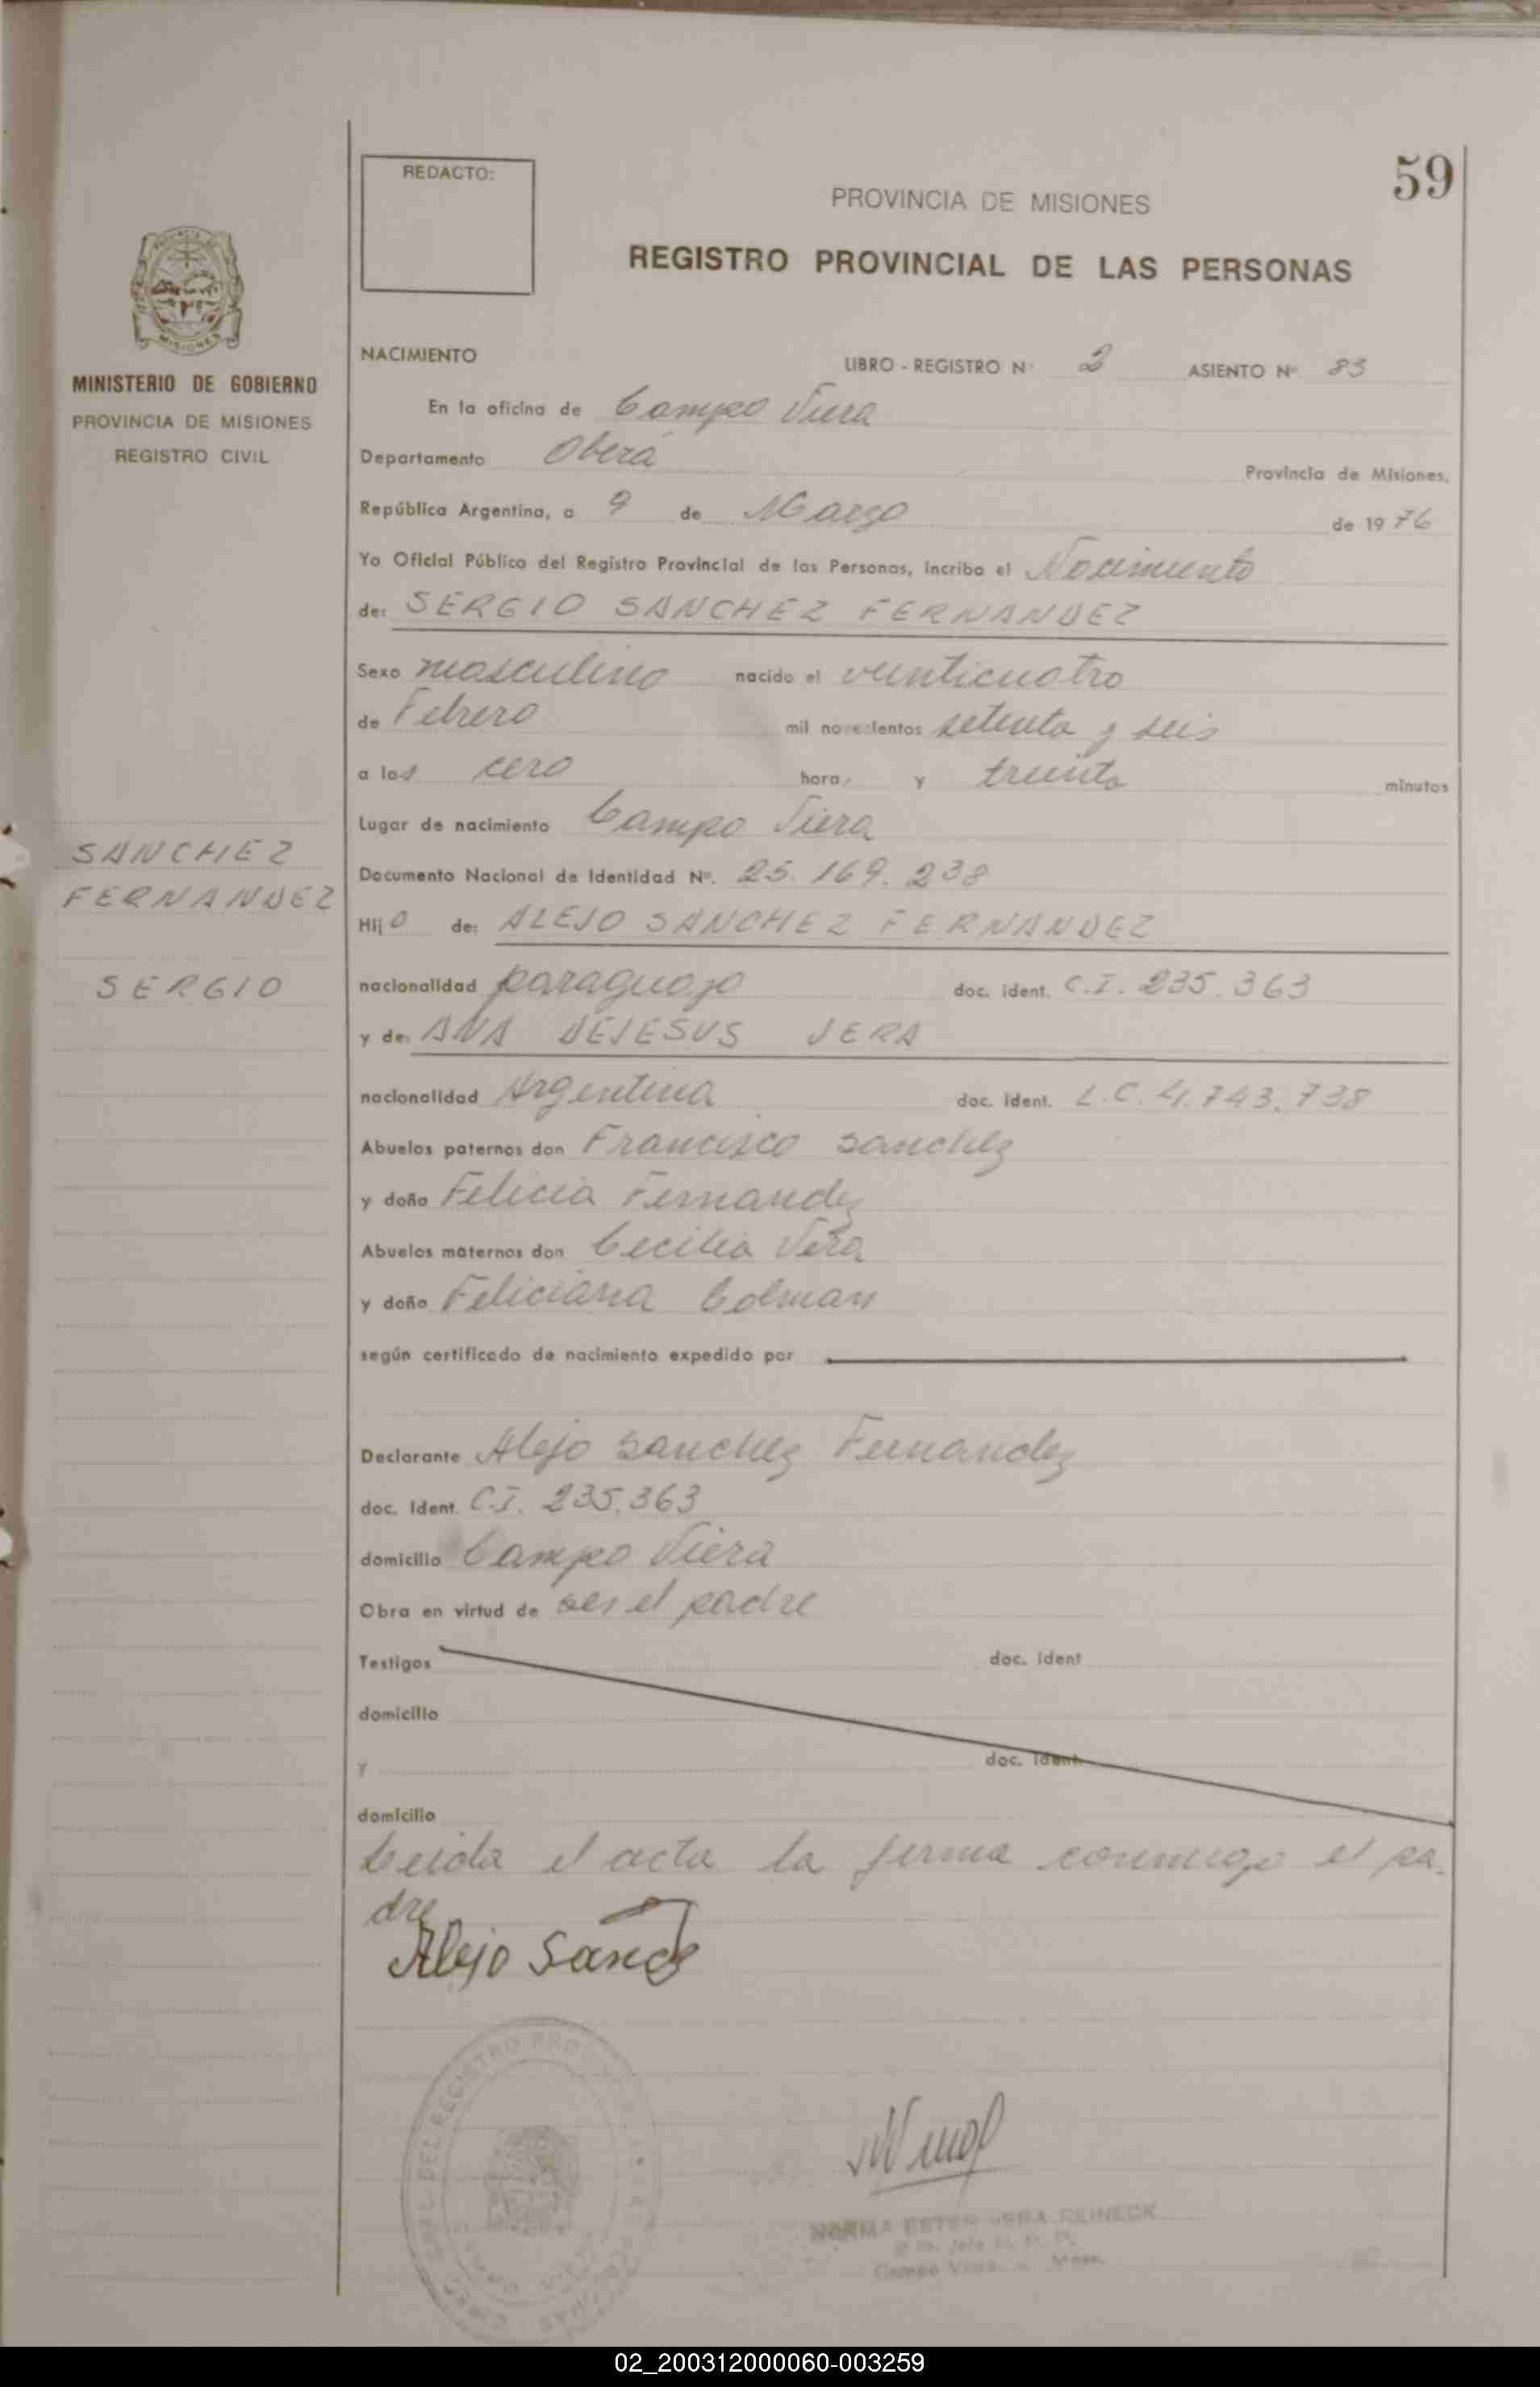 59
REDACTO:
PROVINCIA DE MISIONES
REGISTRO PROVINCIAL DE LAS PERSONAS
MISIONES
MINISTERIO DE GOBIERNO
PROVINCIA DE MISIONES
REGISTRO CIVIL
NACIMIENTO LIBRO - REGISTRO Nº 2 ASIENTO Nº 83
En la oficina de Campo Viera
Departamento Oberá Provincia de Misiones.
República Argentina, a 9 de Marzo de 1976
Yo Oficial Público del Registro Provincial de las Personas, incribo el Nacimiento
de: SERGIO SANCHEZ FERNANDEZ
Sexo masculino nacido el veinticuatro
de Febrero mil novecientos setenta y seis
a las cero hora, y treinta minutos
Lugar de nacimiento Campo Viera
SANCHEZ
FERNANDEZ
SERGIO
Documento Nacional de Identidad Nº. 25.169.238
Hijo de: ALEJO SANCHEZ FERNANDEZ
nacionalidad paraguayo doc. ident. C.I. 235.363
y de: ANA DEJESUS VERA
nacionalidad Argentina doc. ident. L.C. 4.743.738
Abuelos paternos don Francisco Sanchez
y doña Felicia Fernandez
Abuelos maternos don Cecilia Vera
y doña Feliciana Colman
según certificado de nacimiento expedido por
Declarante Alejo Sanchez Fernandez
doc. Ident. C.I. 235.363
domicilio Campo Viera
Obra en virtud de ser el padre
Testigos doc. Ident
domicilio
y doc. Ident.
domicilio
Leida el acta la firma conmigo el pa-
dre
Alejo Sanc
NORMA ESTER VERA REINECK